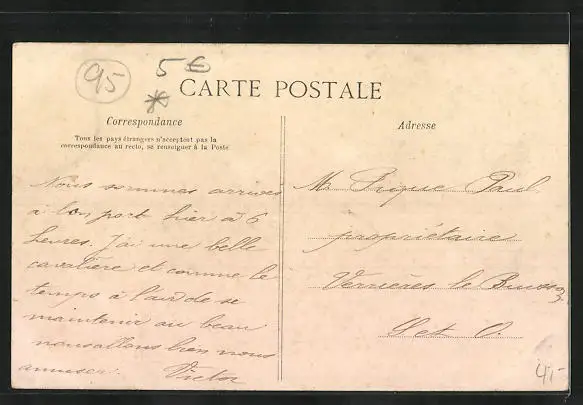 95
5€
*
CARTE POSTALE
Correspondance
Tous les pays étrangers n'acceptent pas la
correspondance au recto, se renseigner à la Poste
Nous sommes arrivés
à bon port hier à 6
heures. J'ai une belle
cavalière et comme le
temps à l'air de se
maintenir au beau
nous allons bien nous
amuser. Victor
Adresse
M. Pique Paul
propriétaire
Verrières le Buisson
S et O.